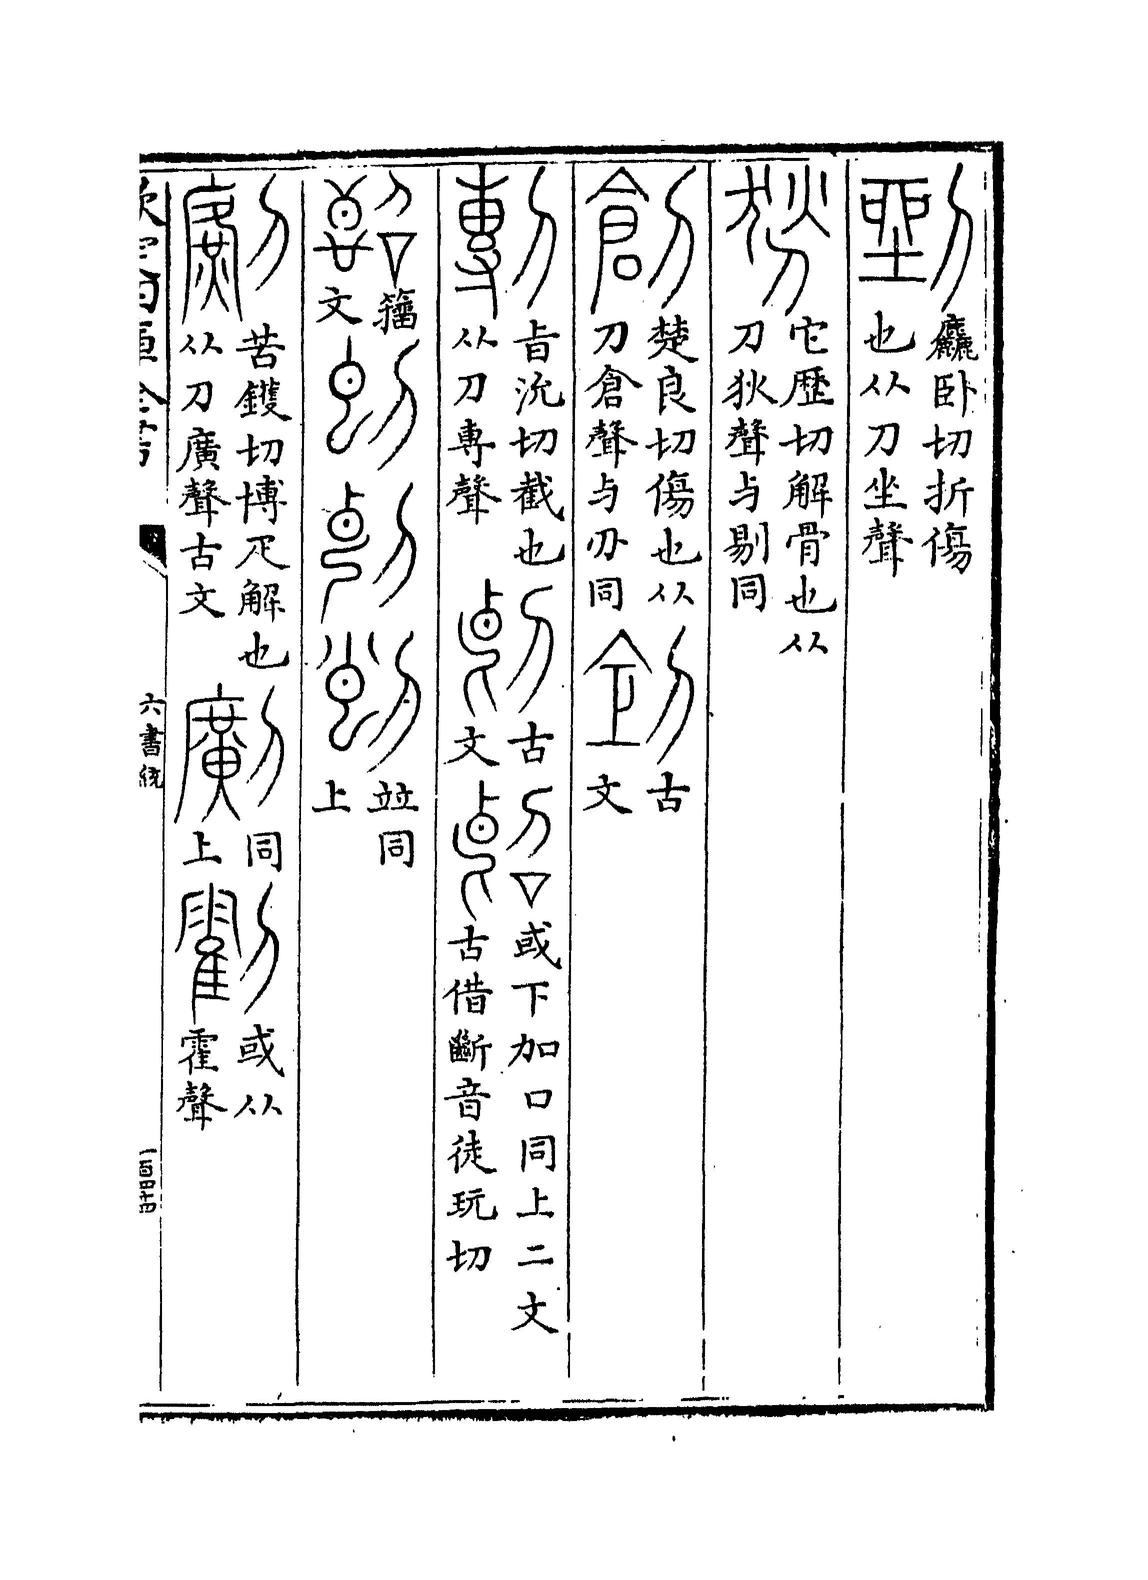 剉
麤卧切折傷
也从刀坐聲
它歷切解骨也从
刀狄聲与剔同
創
楚良切傷也从
刀倉聲与刅同
古
文
剸
旨沇切截也
从刀專聲
古
文
或下加口同上二文
古借斷音徒玩切
籀
文
並同
上
苦鑊切博疋解也
从刀廣聲古文
同
上
或从
霍聲
欽定四庫全書
六書統